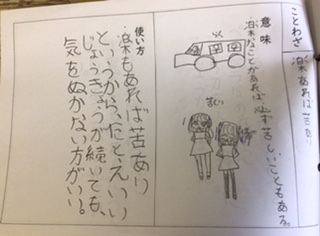 ことわざ
楽あれば苦あり
意味
楽なことがあれば必ず苦しいこともある。
使い方
楽もあれば苦あり
というから、たとえいい
じょうきょうが続いても、
気をぬかない方がいい。